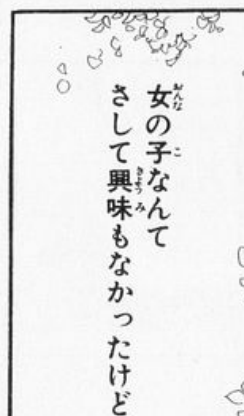 女の子なんて
さして興味もなかったけど